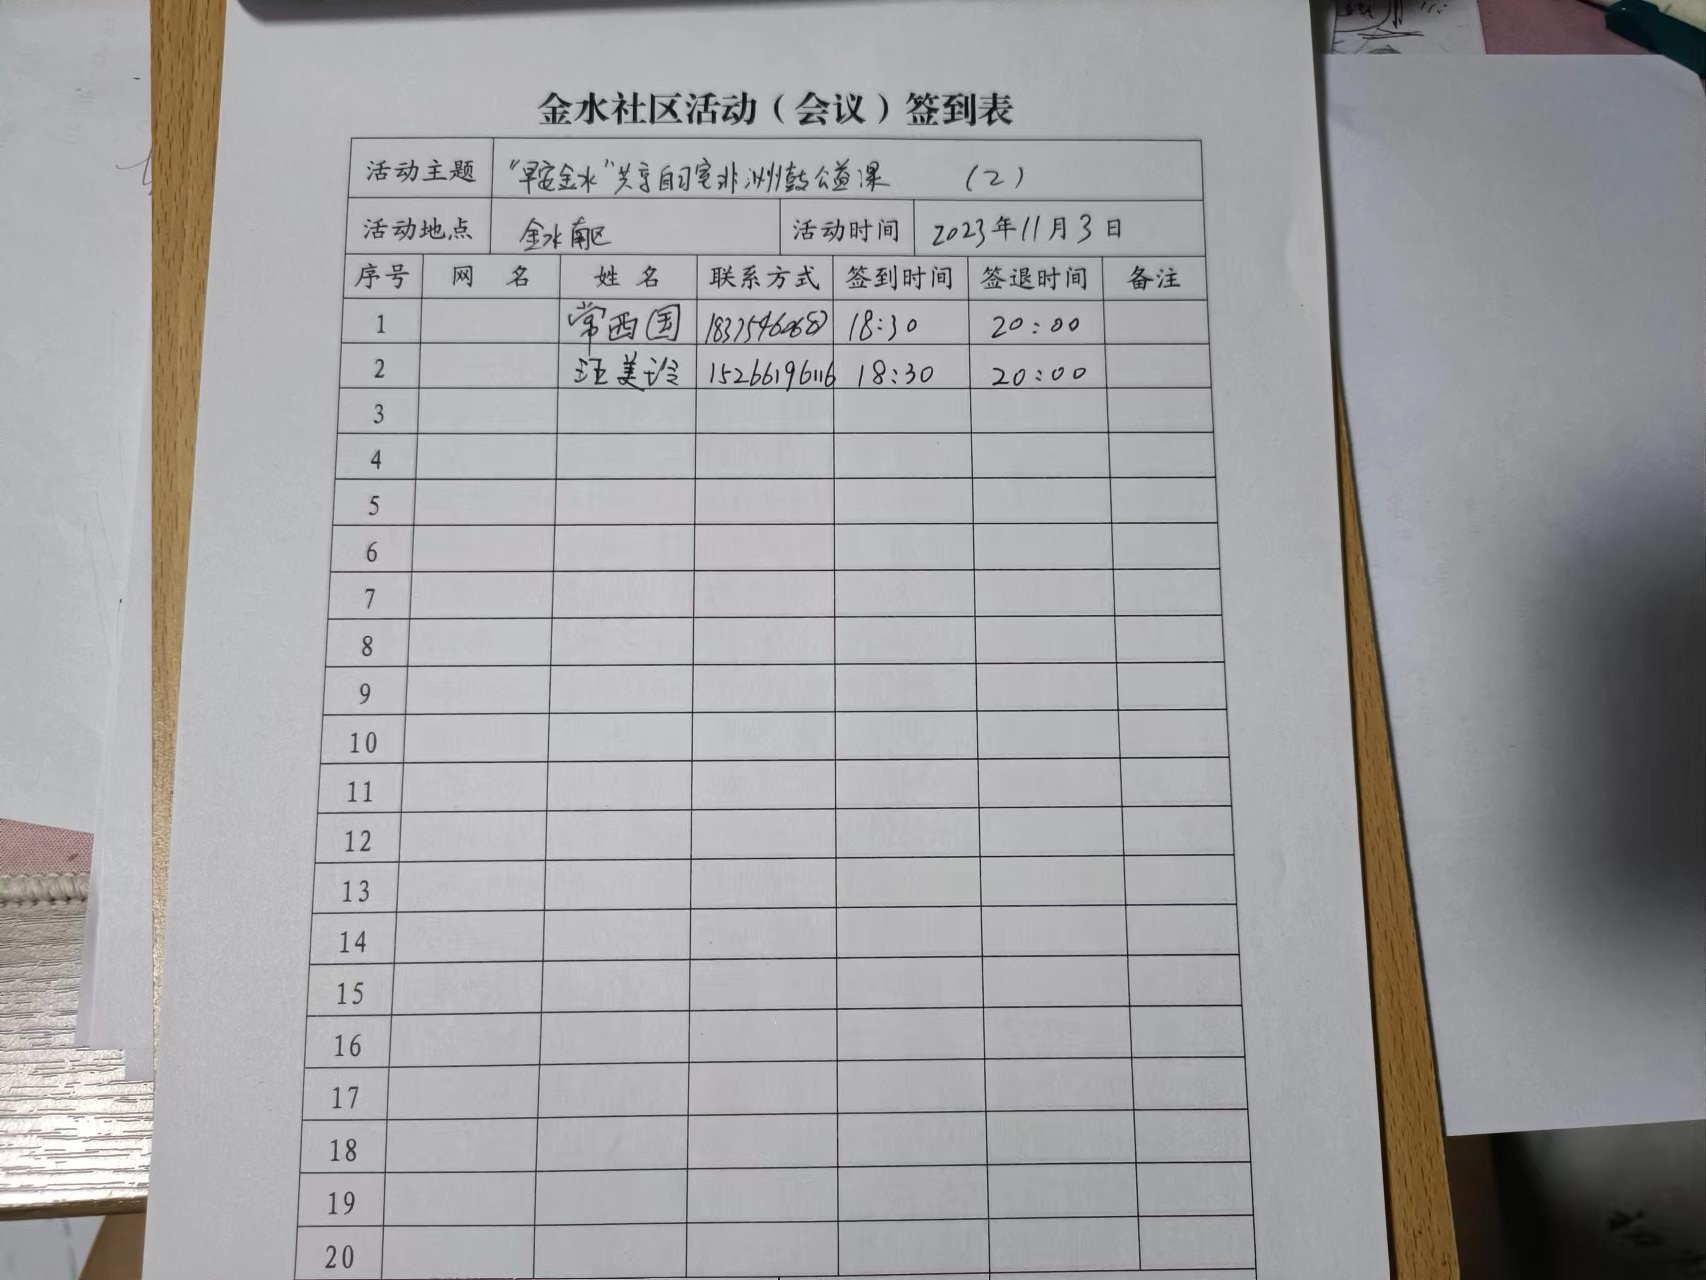 金水社区活动（会议）签到表
活动主题 “早安金水”共享自习室非洲鼓公益课 （2）
活动地点 金水南区 活动时间 2023年11月3日
序号 网 名 姓 名 联系方式 签到时间 签退时间 备注
1 常西国 18:30 20:00
2 汪美玲 15266196116 18:30 20:00
3
4
5
6
7
8
9
10
11
12
13
14
15
16
17
18
19
20